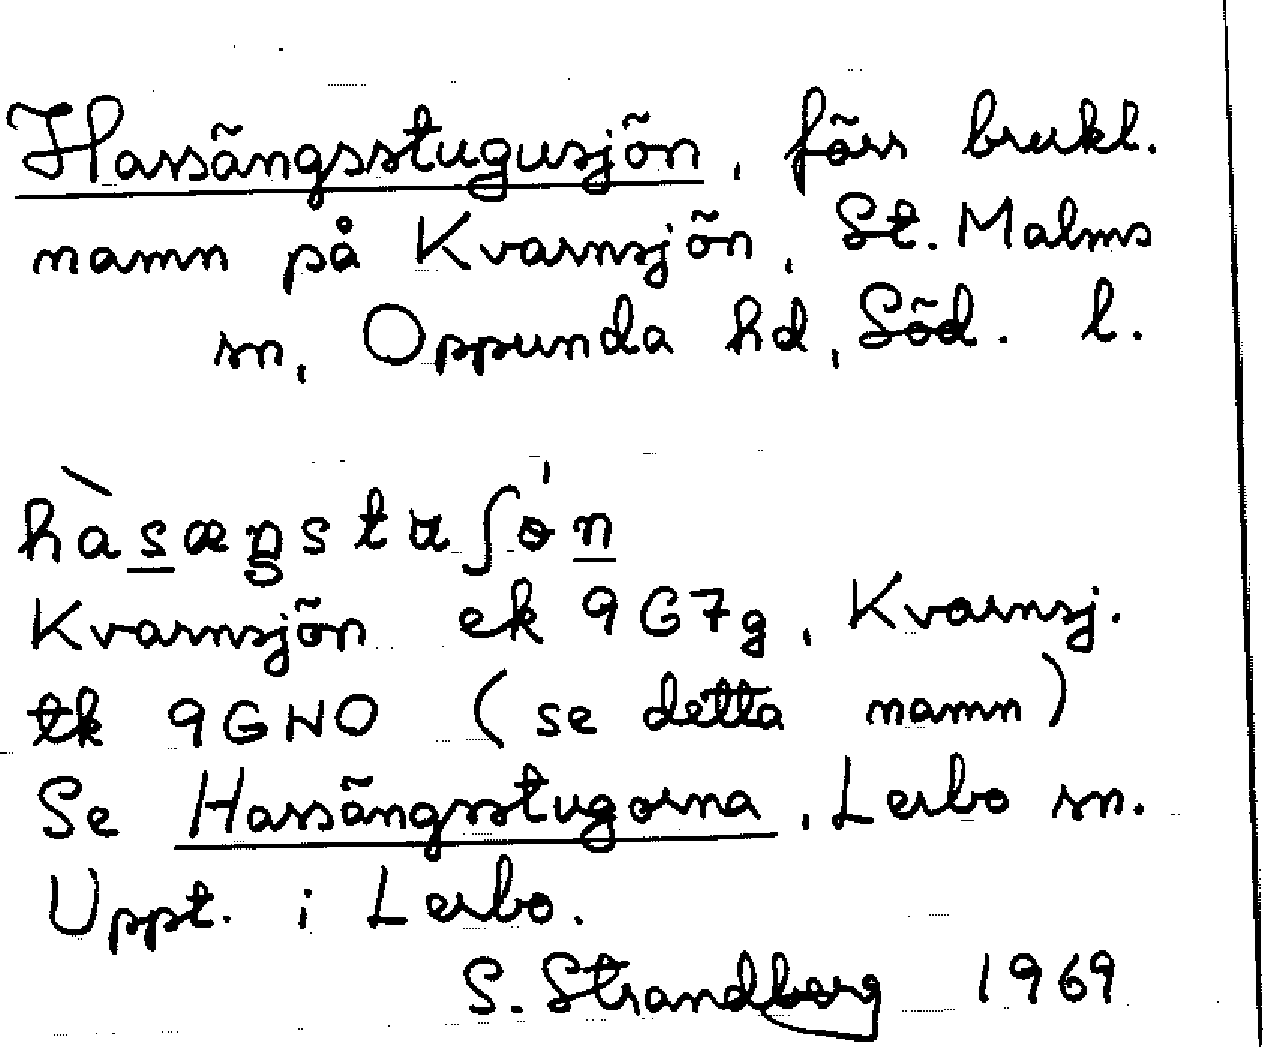 Harsängsstugusjön, förr brukl.
namn på Kvarnsjön, St. Malms
sn, Oppunda hd, Söd. l.
hàsæŋstuʃɵ́n
Kvarnsjön ek 9G7g, Kvarnsj.
tk 9GNO (se detta namn)
Se Harsängsstugorna, Lerbo sn.
Uppt. i Lerbo.
S. Strandberg 1969